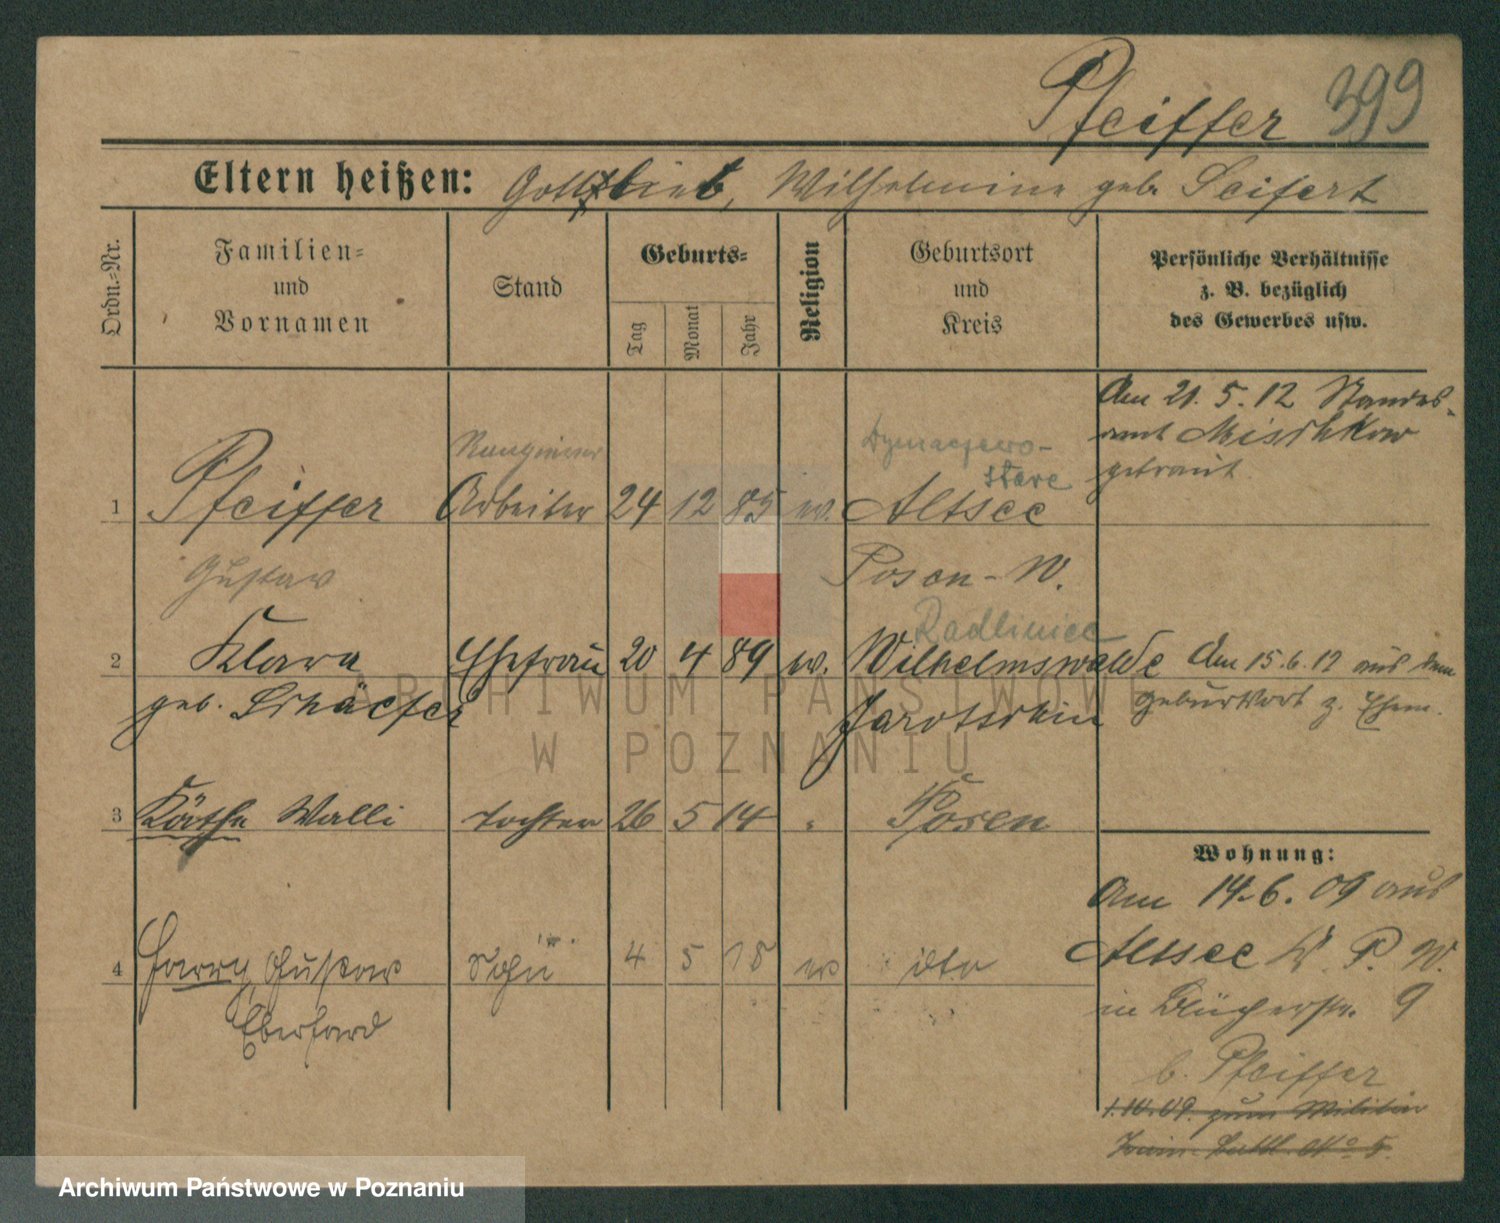 Pfeiffer 399
Eltern heißen: Gottlieb, Wilhelmine geb. Seifert
Ordn.-Nr.
Familien-
und
Vornamen
Stand
Geburts-
Tag
Monat
Jahr
Religion
Geburtsort
und
Kreis
Persönliche Verhältnisse
z. B. bezüglich
des Gewerbes usw.
Am 21. 5. 12 Standes-
amt Mieschkow
getraut.
Dymaczewo-
stare
1 Pfeiffer Arbeiter 24 12 85 ev. Altsee
Gustav Posen-W.
Radliniec
2 Klara Ehefrau 20 4 89 ev. Wilhelmswalde Am 15.6.12 aus dem
geb. Schäefer Jarotschin Geburtsort z. Ehem.
3 Käthe Walli Tochter 26 5 14 Posen
Wohnung:
Am 14.6.09 aus
4 Harry, Gustav Sohn 4 5 18 ev dto Altsee K. P. W.
Eberhard in Bücherstr. 9
b. Pfeiffer
1.10.09. zum Militär
Train. Battl. No 5.
ARCHIWUM PAŃSTWOWE
W POZNANIU
Archiwum Państwowe w Poznaniu